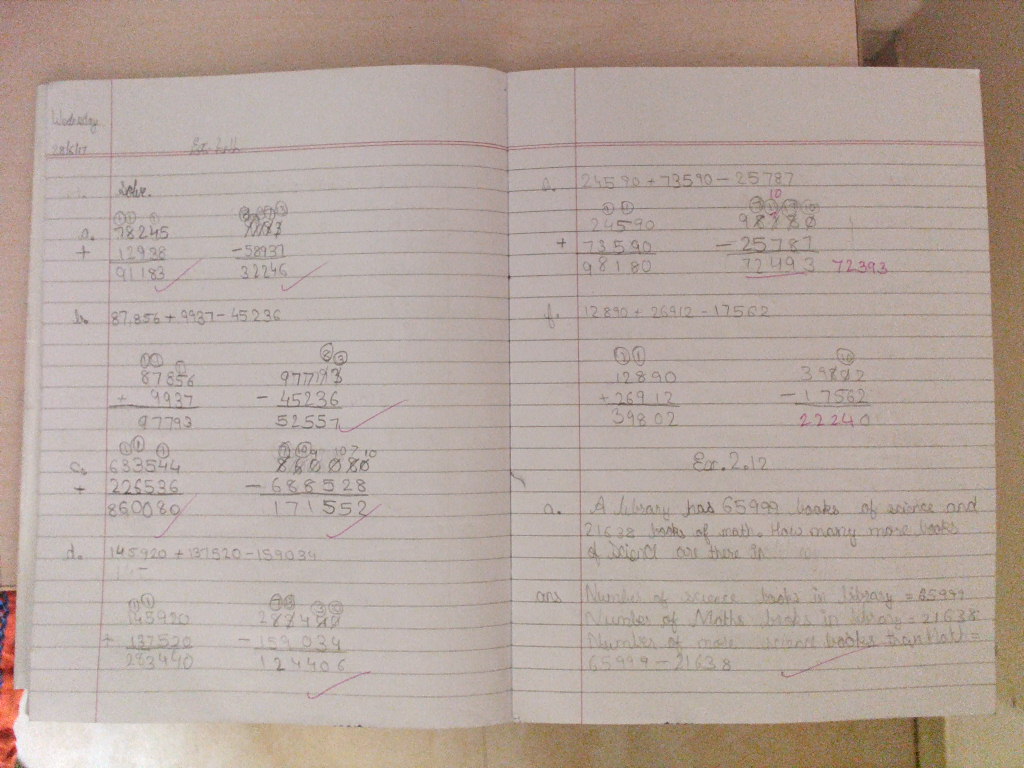 Wednesday
28/6/17
Solve.
a. 78245
+ 12938
91183
- 58937
32246
b. 87,856 + 9937 - 45236
87856
+ 9937
97793
97793
- 45236
52557
c. 633544
+ 226536
860080
860080
- 688528
171552
d. 145920 + 137520 - 159034
145920
+ 137520
283440
283440
- 159034
124406
e. 24590 + 73590 - 25787
24590
+ 73590
98180
10
98180
- 25787
72493 72393
f. 12890 + 26912 - 17562
12890
+ 26912
39802
39802
- 17562
22240
Ex. 2.12
a. A library has 65999 books of science and
21638 books of math. How many more books
of science are there in
ans Number of science books in library = 65999
Number of Maths books in library = 21638
Number of more science books than Math =
65999 - 21638